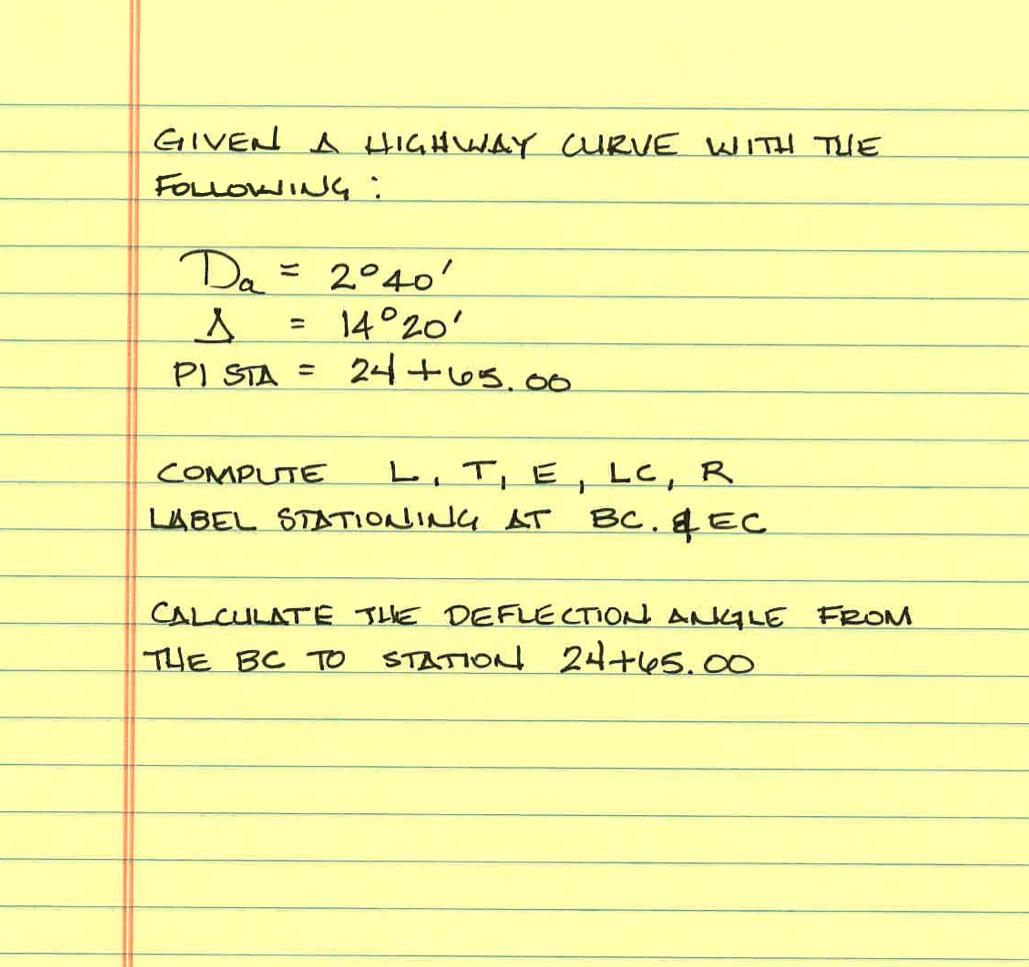 GIVEN A HIGHWAY CURVE WITH THE
FOLLOWING:
Da = 2°40'
Δ = 14°20'
PI STA = 24+65.00
COMPUTE L, T, E, LC, R
LABEL STATIONING AT BC. & EC
CALCULATE THE DEFLECTION ANGLE FROM
THE BC TO STATION 24+65.00